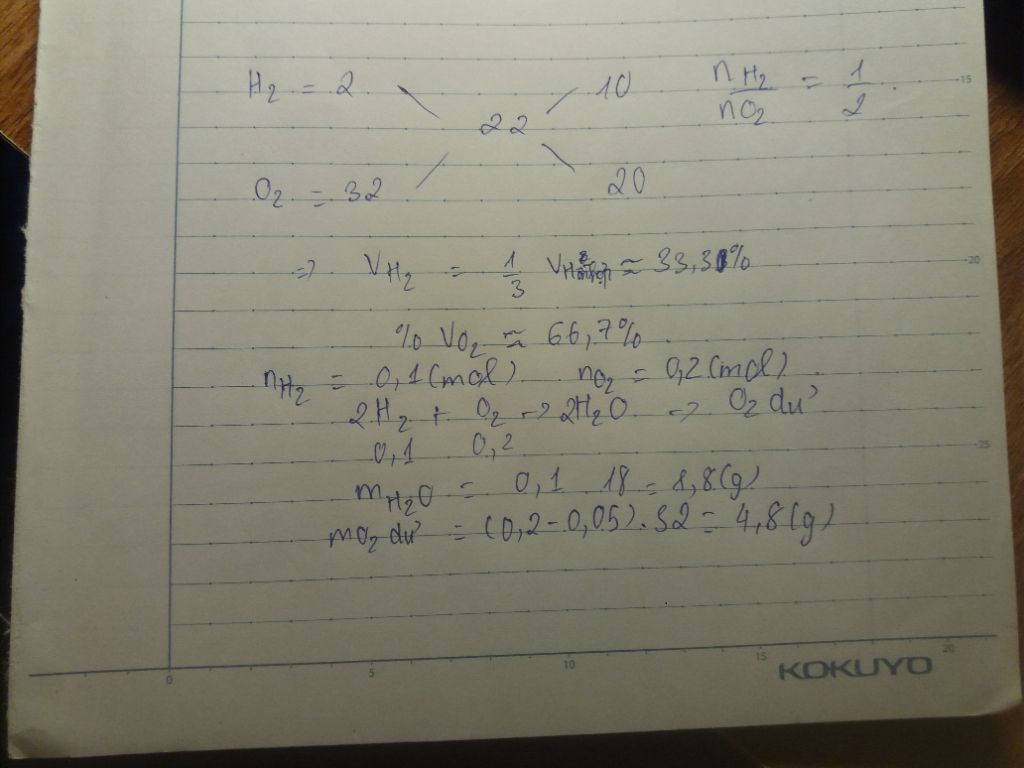 H₂ = 2 10 nH₂/nO₂ = 1/2
15
22
O₂ = 32 20
=> VH₂ = 1/3 ≈ 33,3%
20
% VO₂ ≈ 66,7%
nH₂ = 0,1 (mol) nO₂ = 0,2 (mol)
2H₂ + O₂ -> 2H₂O => O₂ dư
0,1 0,2
25
mH₂O = 0,1 18 = 1,8 (g)
mO₂ dư = (0,2 - 0,05) . 32 = 4,8 (g)
0 5 10 15 20
KOKUYO